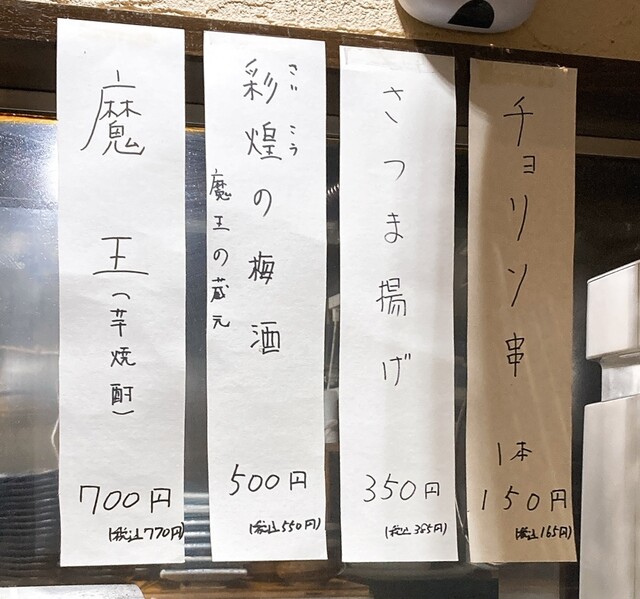 チョリソ串 1本
150円
(税込165円)
さつま揚げ
350円
(税込385円)
彩煌の梅酒
さいこう
魔王の蔵元
500円
(税込550円)
魔王(芋焼酎)
700円
(税込770円)